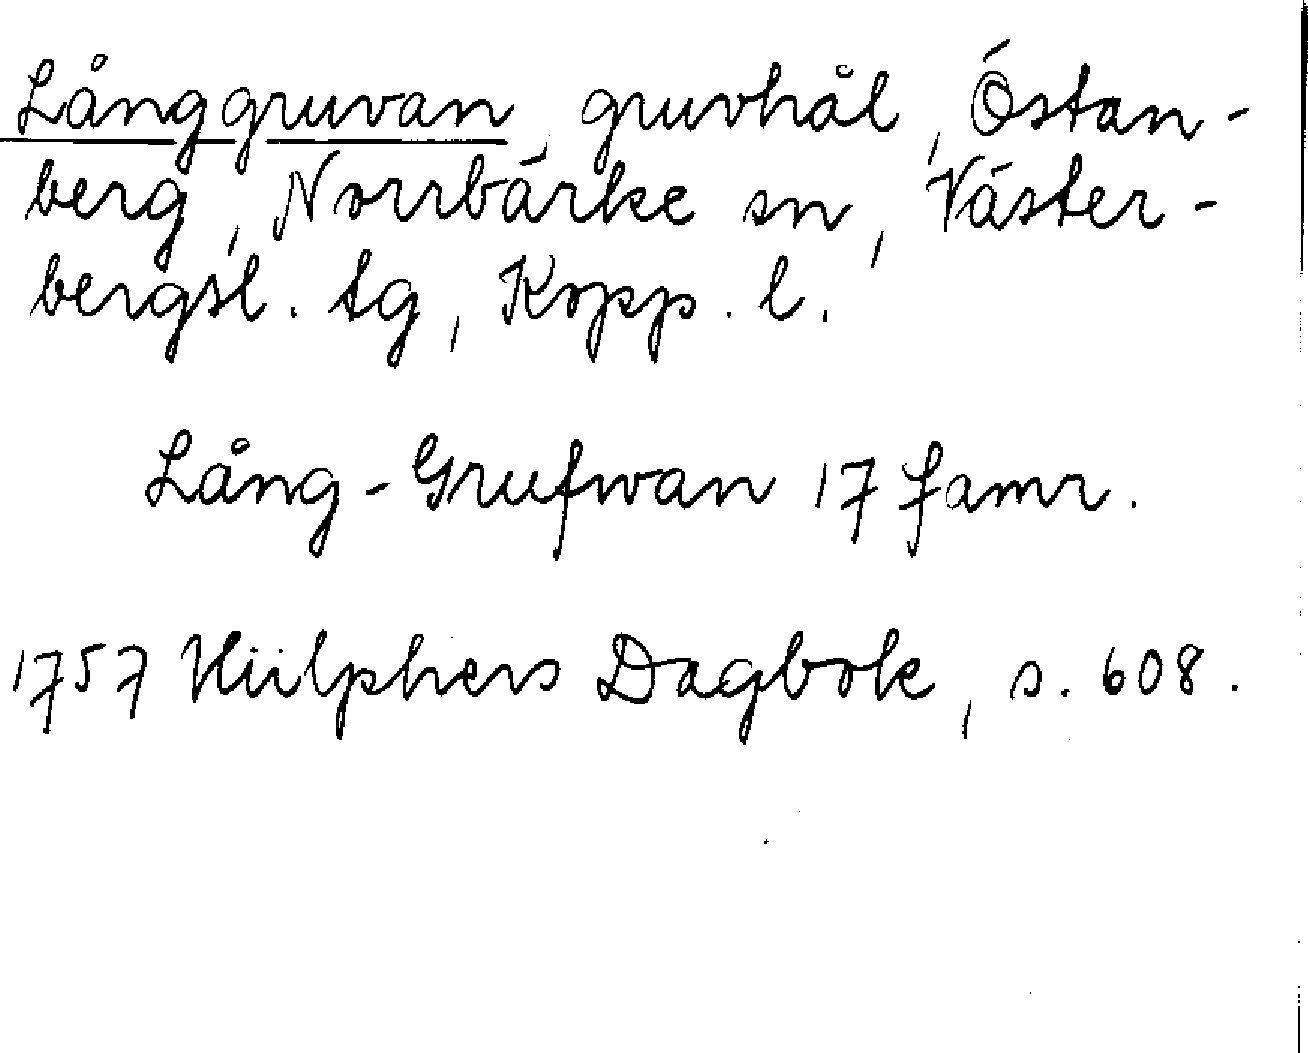 Långgruvan, gruvhål, Östan-
berg, Norrbärke sn, Väster-
bergsl. tg, Kopp. l.
Lång-Grufwan 17 famr.
1757 Hülphers Dagbok, s. 608.